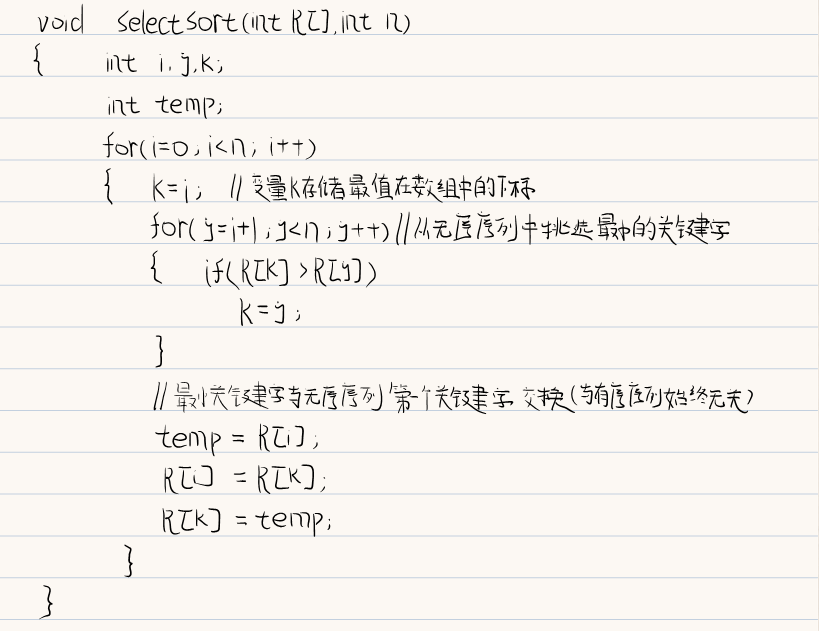 void selectsort(int R[],int n)
{ int i,j,k;
int temp;
for(i=0;i<n;i++)
{ k=i; //变量k存储最值在数组中的下标
for(j=i+1;j<n;j++)//从无序序列中挑选最小的关键字
{ if(R[k]>R[j])
k=j;
}
//最小关键字与无序序列第一个关键字交换(与有序序列始终无关)
temp=R[i];
R[i]=R[k];
R[k]=temp;
}
}